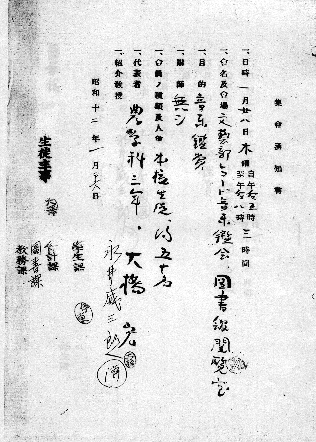 集會通知書
一、日時 一月廿八日 木曜 自午后五時 至午后八時 三時間
一、會名及會場 文藝部レコード音樂鑑賞會、圖書館閲覧室
一、目的 音樂鑑賞
一、講師 無シ
一、會員ノ種類及人員 本校生徒、約五十名
一、代表者 農學科三年、大橋
一、紹介教授 永井威三郎
昭和十二年一月 日
生徒主事
學生課
會計課
圖書課
教務課